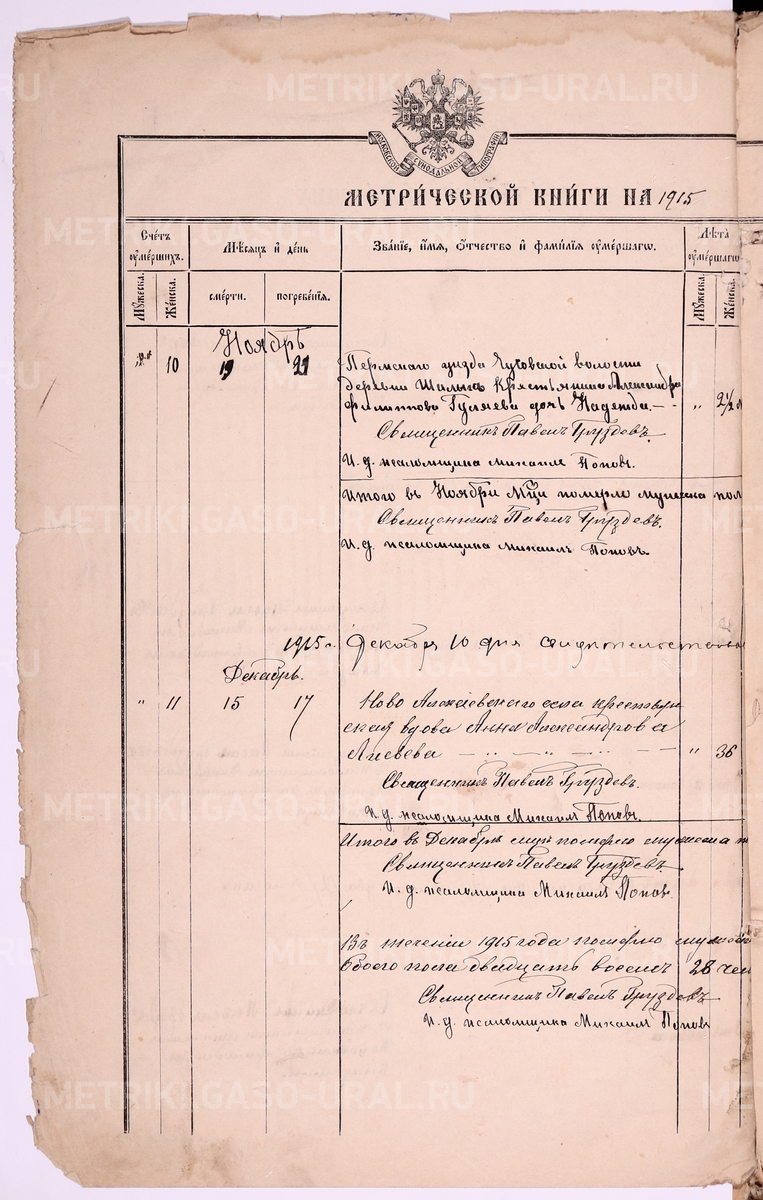 МОСКОВСКОЙ СѴНОДАЛЬНОЙ ТИПОГРАФІИ
МЕТРИЧЕСКОЙ КНИГИ НА 1915
Счетъ умершихъ.
Мѣсяцъ и день
Званіе, имя, отчество и фамилія умершаго.
Лѣта умершаго
Мужеска. Женска.
смерти. погребенія.
Мужеска. Женска.
Ноябрь
10 19 21 Пермскаго уѣзда волости
деревни Крестьянина Александра
Филиппова Гуляева дочь Надежда. „ 2½
Священникъ Павелъ Груздевъ.
И. д. псаломщика Михаилъ Поповъ.
Итого въ Ноябрѣ м-цѣ померло мужеска пол
Священникъ Павелъ Груздевъ.
И. д. псаломщика Михаилъ Поповъ.
1915 г. Декабря 10 дня
Декабрь.
„ 11 15 17 Ново Алексѣевскаго села крестьян
ская вдова Анна Александрова
„ 36
Священникъ Павелъ Груздевъ.
И. д. псаломщика Михаилъ Поповъ.
Итого въ Декабрѣ м-цѣ померло мужеска
Священникъ Павелъ Груздевъ.
И. д. псаломщика Михаилъ Поповъ
Въ теченіи 1915 года померло
Обоего пола двадцать восемь 28 чел
Священникъ Павелъ Груздевъ
И. д. псаломщика Михаилъ Поповъ
METRIKI.GASO-URAL.RU